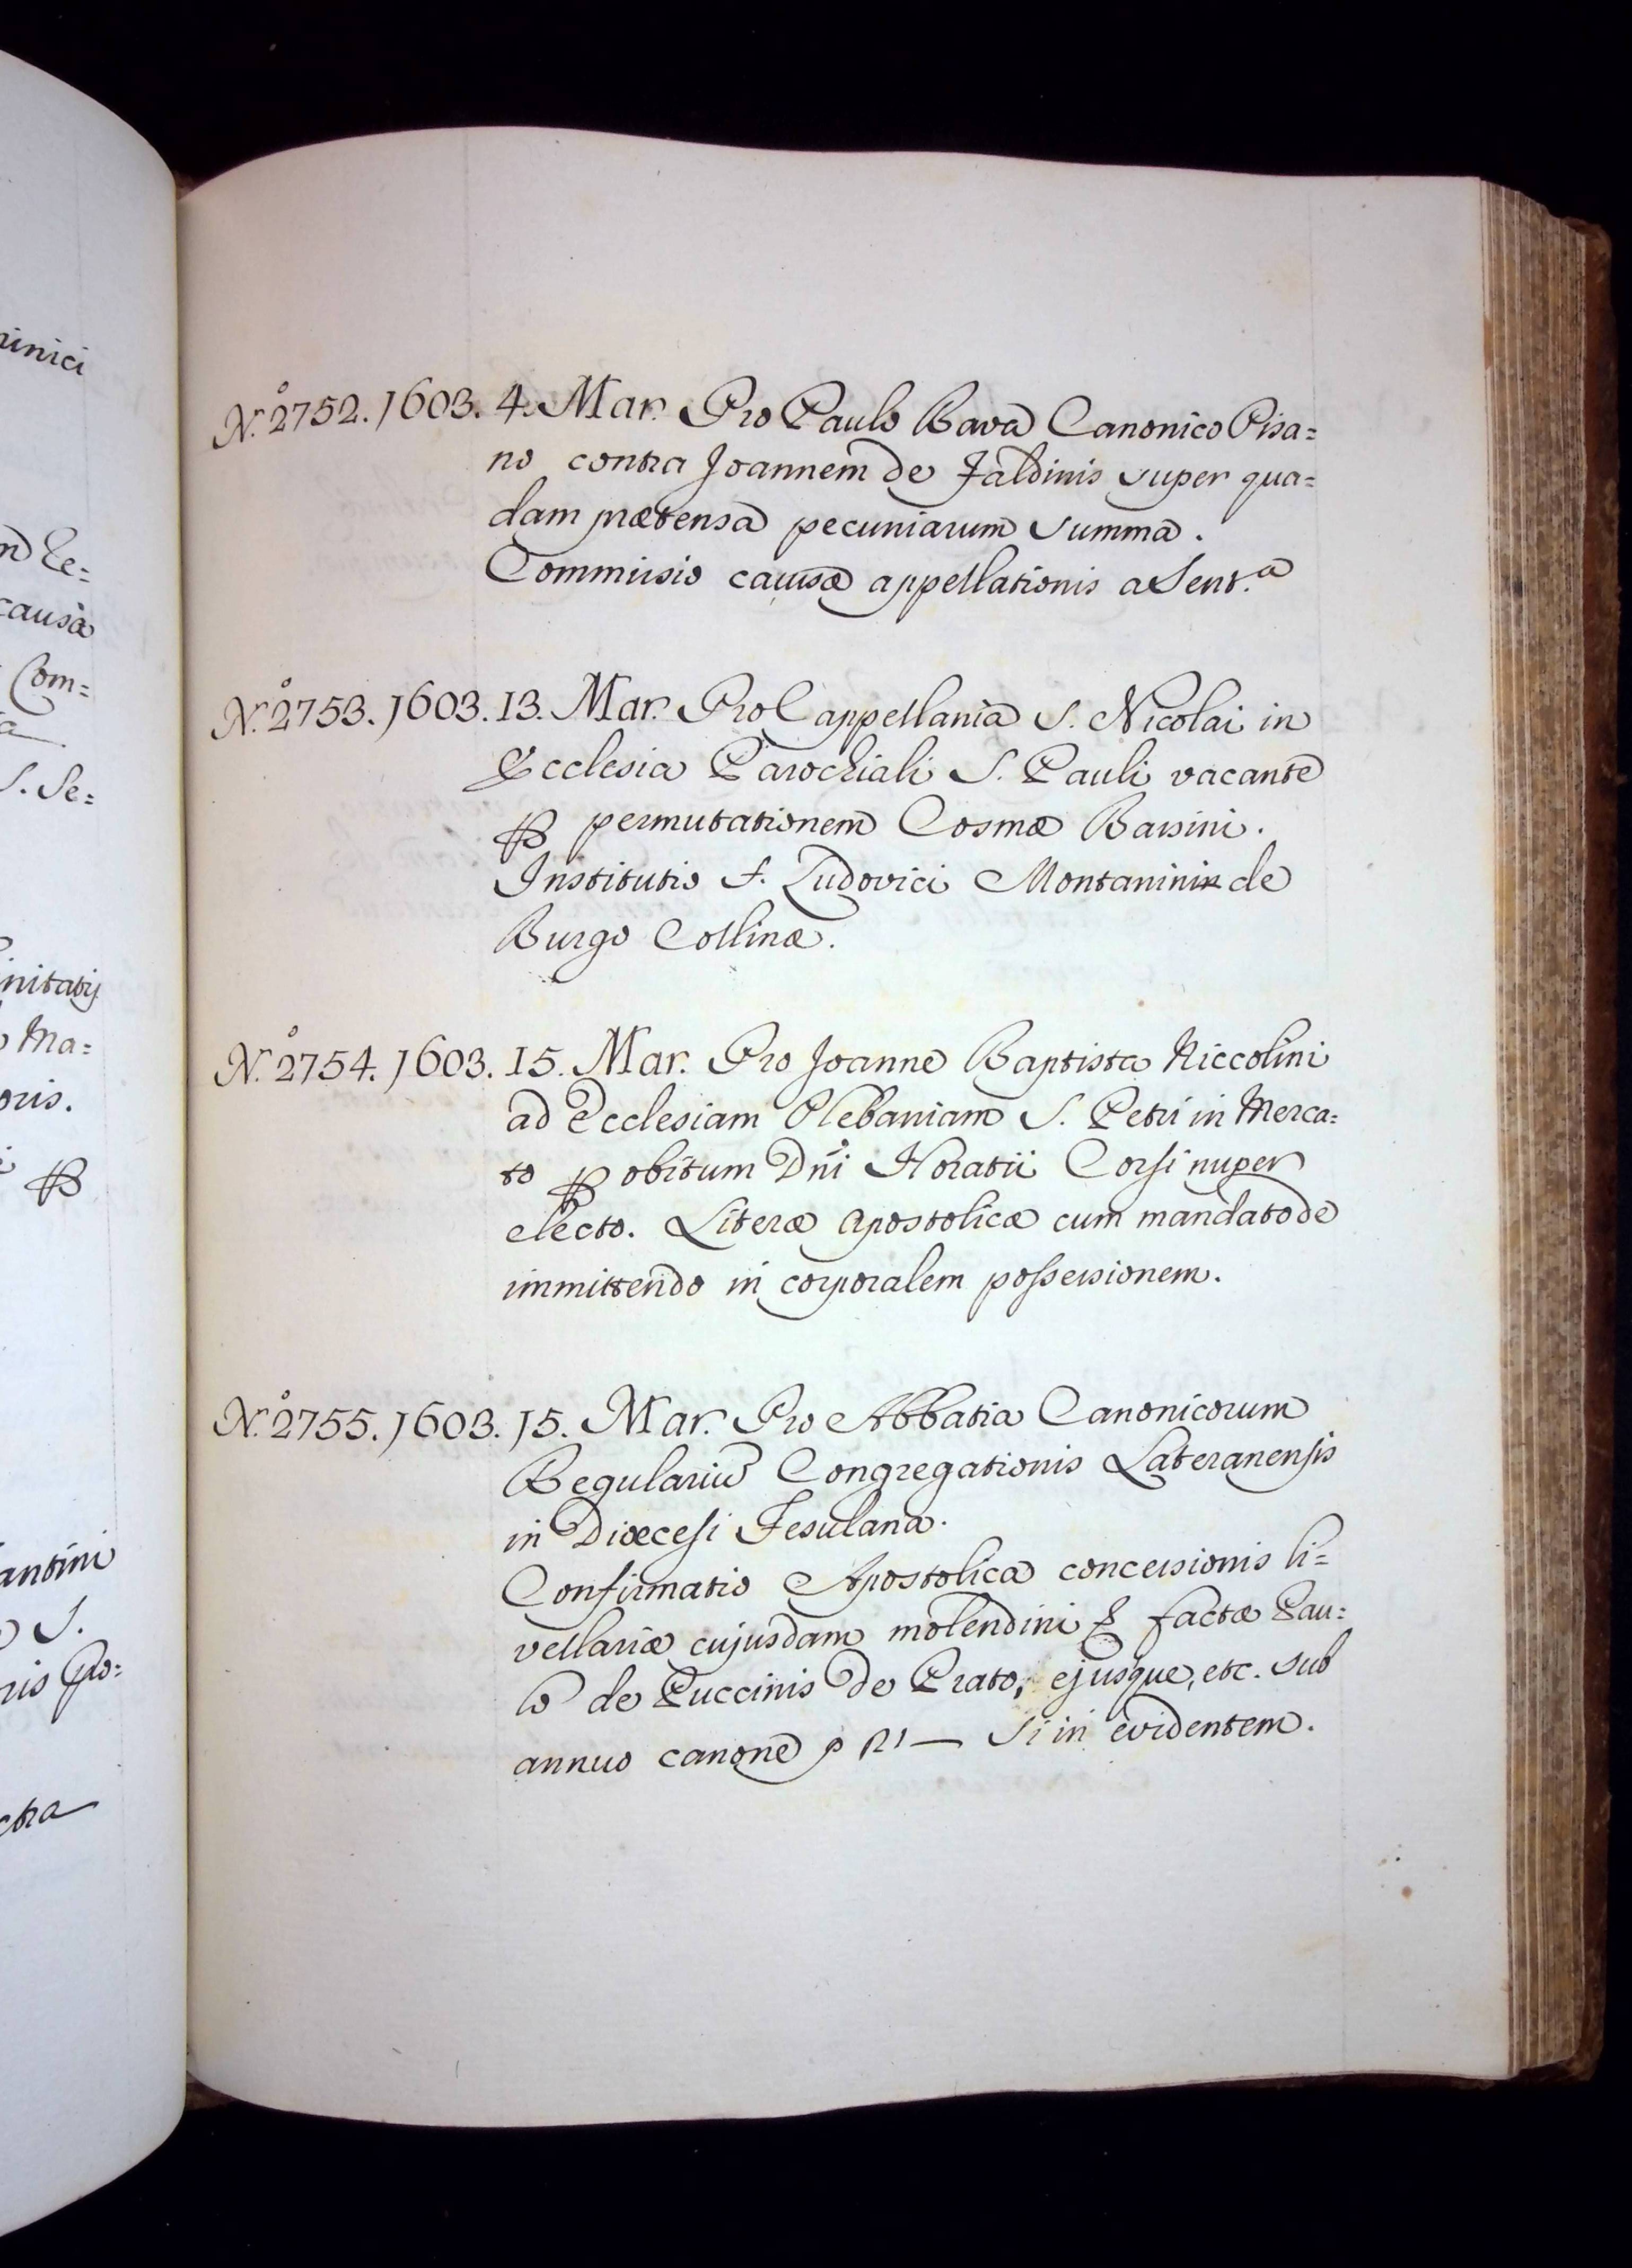 inici
nd Le=
causa
Com=
a
S. Se=
nitatis
Ma=
oris.
antini
S.
ctra
N.º 2752. 1603. 4. Mar. Pro Paulo Bava Canonico Pisa=
no contra Joannem de Faldinis super qua=
dam prætensa pecuniarum summa.
Commissio causæ appellationis a Sent.a
N.º 2753. 1603. 13. Mar. Pro Cappellania S. Nicolai in
Ecclesia Parochiali S. Pauli vacante
ꝑ permutationem Cosmæ Barsini.
Institutio f. Ludovici Montanini de
Burgo Collinæ.
N.º 2754. 1603. 15. Mar. Pro Joanne Baptista Niccolini
ad Ecclesiam Plebaniam S. Petri in Merca=
to ꝑ obitum Dñi Horatii Corsi nuper
electo. Literæ Apostolicæ cum mandato de
immittendo in corporalem possessionem.
N.º 2755. 1603. 15. Mar. Pro Abbatia Canonicorum
Regulariū Congregationis Lateranensis
in Diœcesi Fesulana.
Confirmatio Apostolica concessionis li=
vellariæ cujusdam molendini & factæ Pau=
lo de Puccinis de Prato, ejusque, etc. sub
annuo canone Si in evidentem.